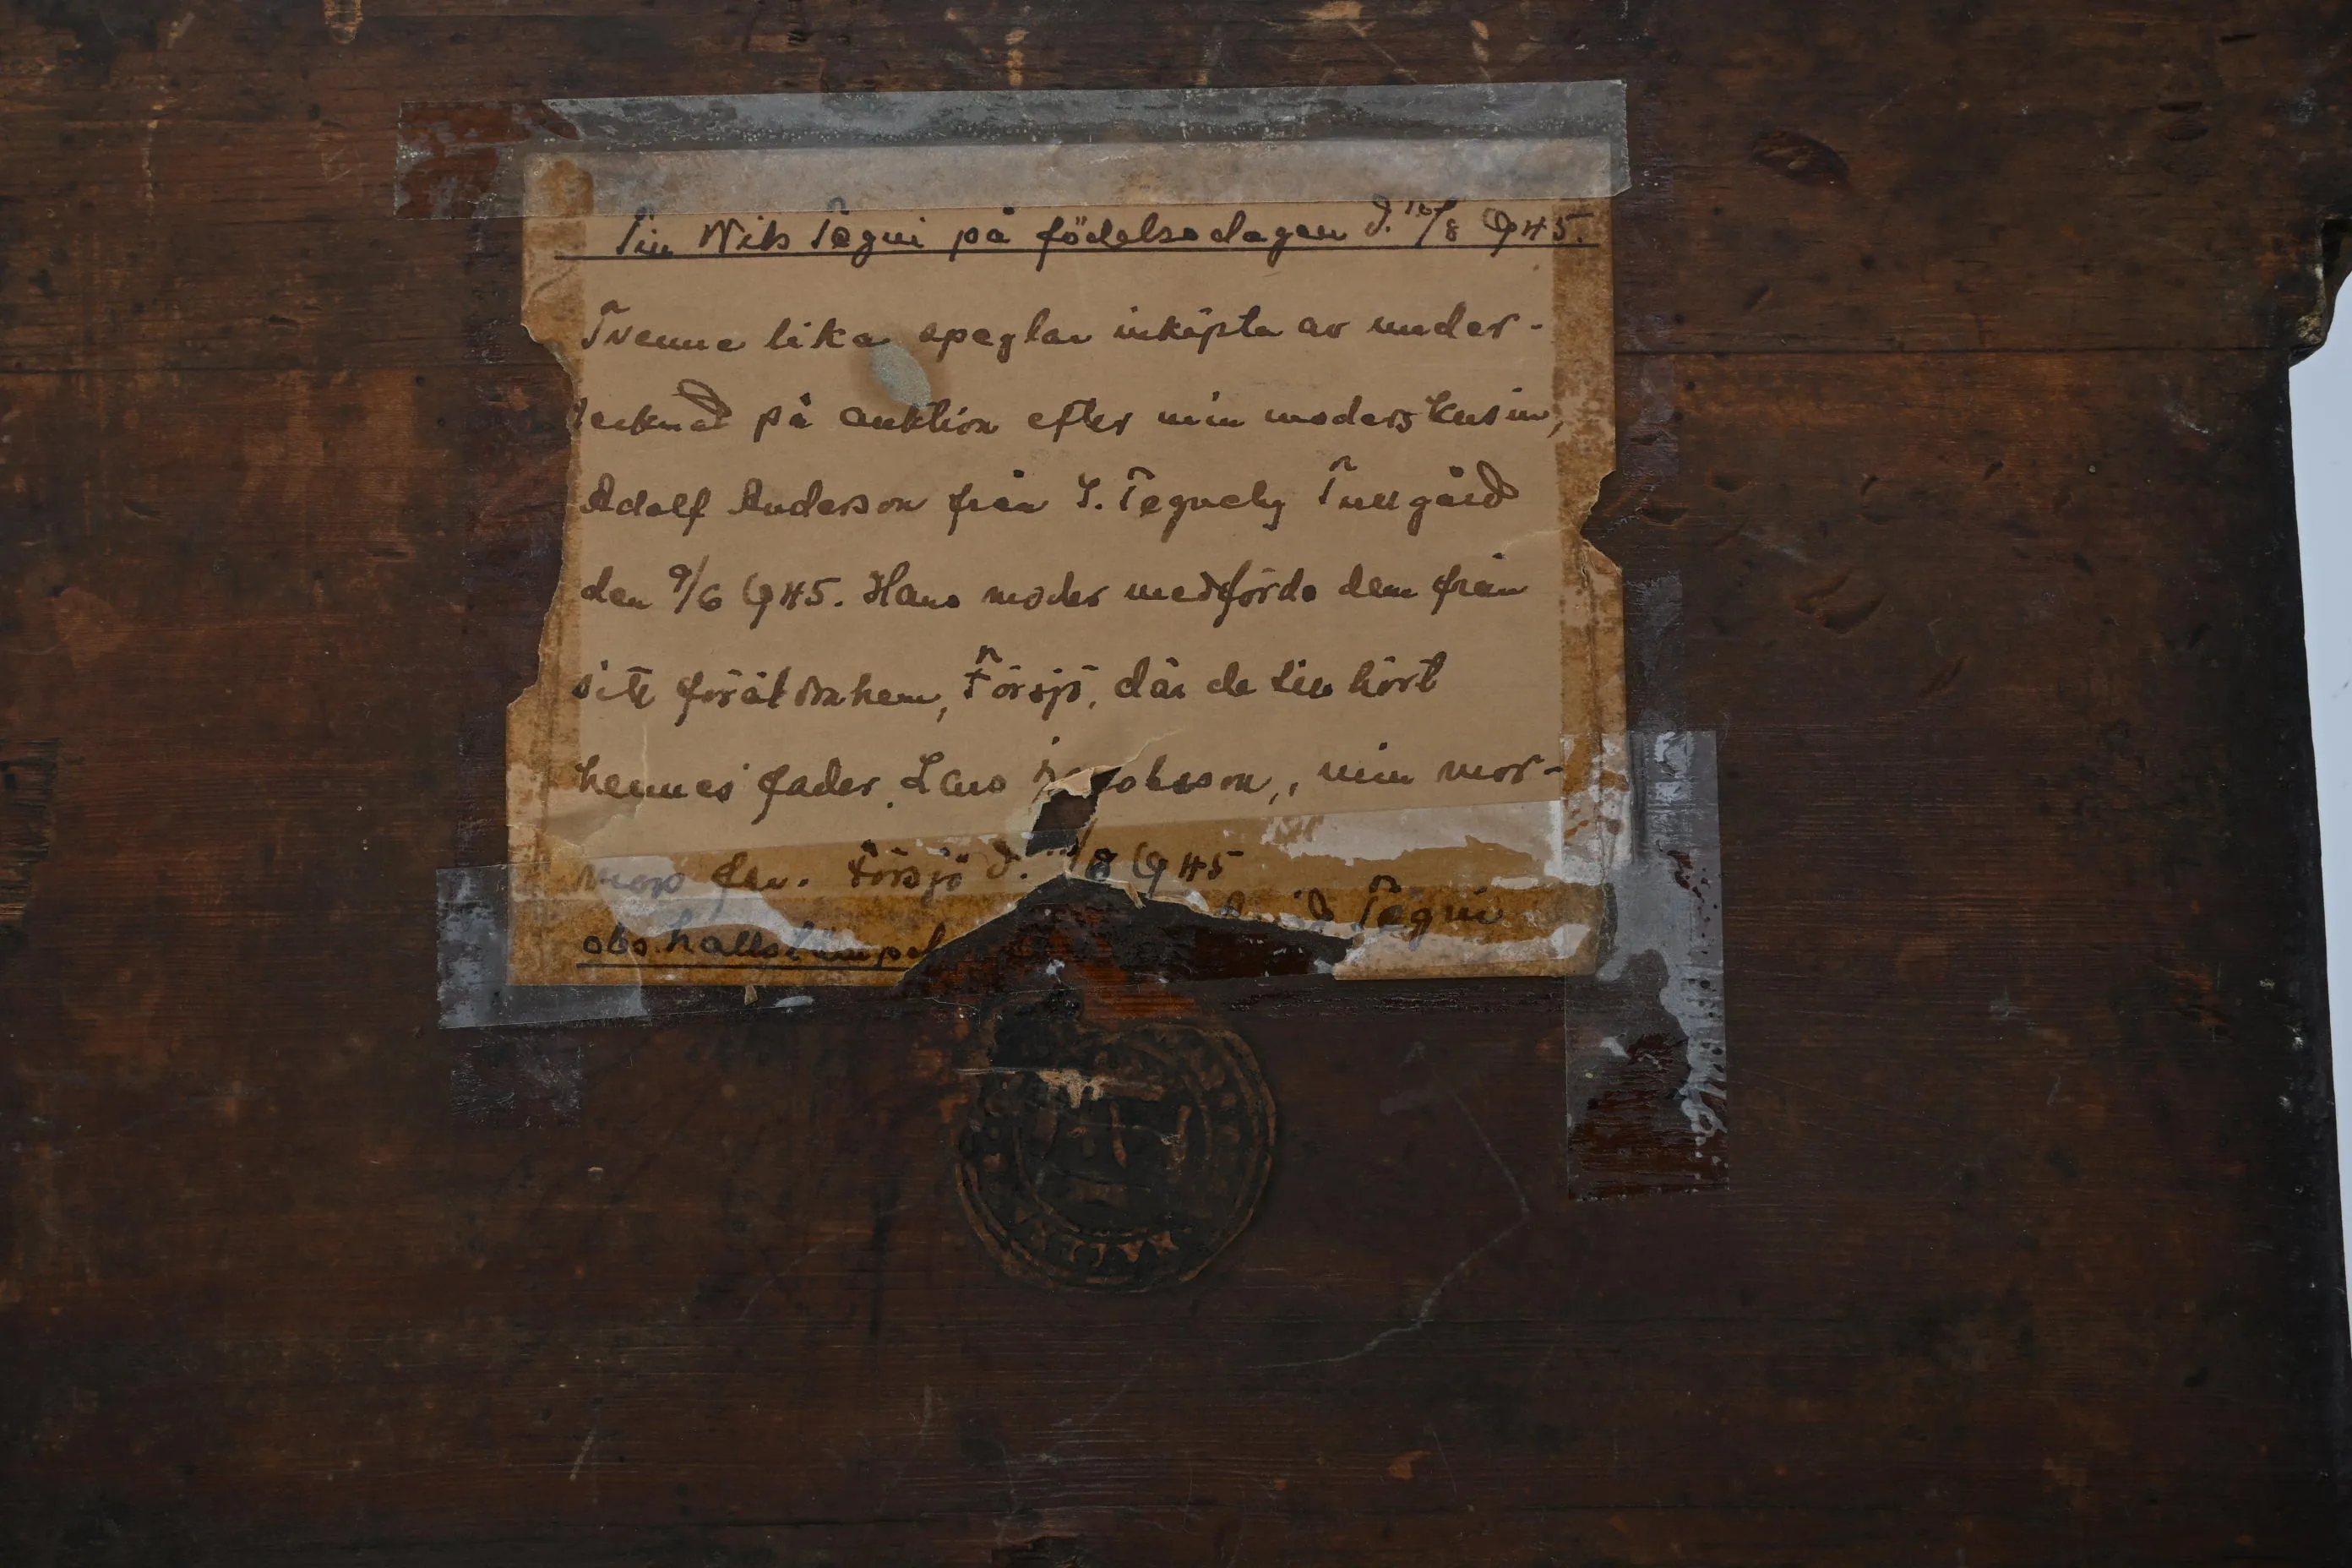 Till Nils Tegni på födelsedagen d. 16/8 1945.
Tvenne lika speglar inköpta av under-
tecknad på auktion efter min moders kusin,
Adolf Anderson från S. Tegneby Tullgård
den 9/6 1945. Hans moder medförde dem från
sitt föräldrahem, Törsjö, där de tillhört
hennes fader, Lars J kobsson, min mor-
mors far. Törsjö d. /8 1945
Tegni
obs. hallstämpel